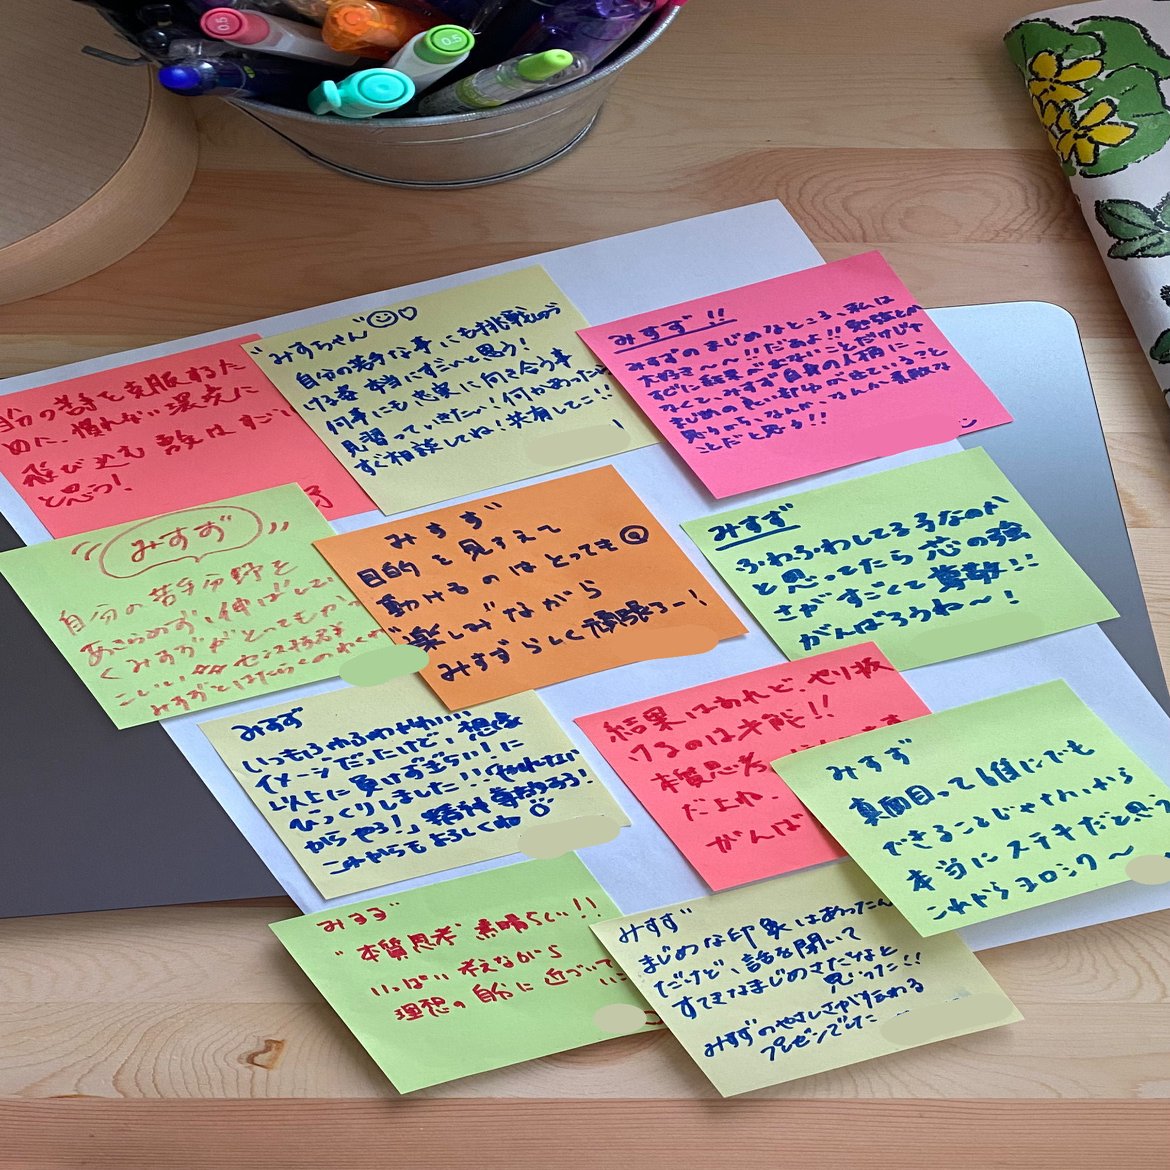 0.5
0.5
自分の苦手を克服するた
めに、慣れない環境に
飛び込む勇気はすごい
と思う!
みすちゃん
自分の苦手な事にも挑戦しつづ
ける姿本当にすごいと思う!
何事にも忠実に向き合う事
見習っていきたい!何かあったら
すぐ相談してね!共有してこ!!
みすず!!
みすずのまじめなところ、私は
大好き〜〜!!だぁよ!!勉強とか
すぐに結果が出ないことだけじゃ
なくて、みすず自身の人柄に、
まじめの良い部分が出ていること
思うから、なんか、なんか、素敵な
ことだと思う!!
みすず
自分の苦手分野を
あきらめずに伸ばしてい
くみすずがとってもかっ
こいい!
みすずとはたらくの
みすず
目的を見すえて
動けるのはとっても◎
"楽しみ"ながら
みすずらしく頑張ろー!
みすず
ふわふわしてる子なのか
と思ってたら芯の強
さがすごくて尊敬!!
がんばろうね〜!
みすず
いつもふわふわかわいい
イメージだったけど、想像
以上に負けずぎらい!に
びっくりしました!!「やれない
からやろ!」精神尊敬する!
これからもよろしくね
結果はあれど、やり抜
けるのは才能!!
本質思考
だよね、
がんば
みすず
真面目って誰にでも
できることじゃないから
本当にステキだと思う
これからヨロシク〜
みすず
"本質思考"素晴らしい!!
いっぱい考えながら
理想の自分に近づいて
みすず
まじめな印象はあったん
だけど、話を聞いて
すてきなまじめさだなと
感じった!!
みすずのやさしさが伝わる
プレゼンでした